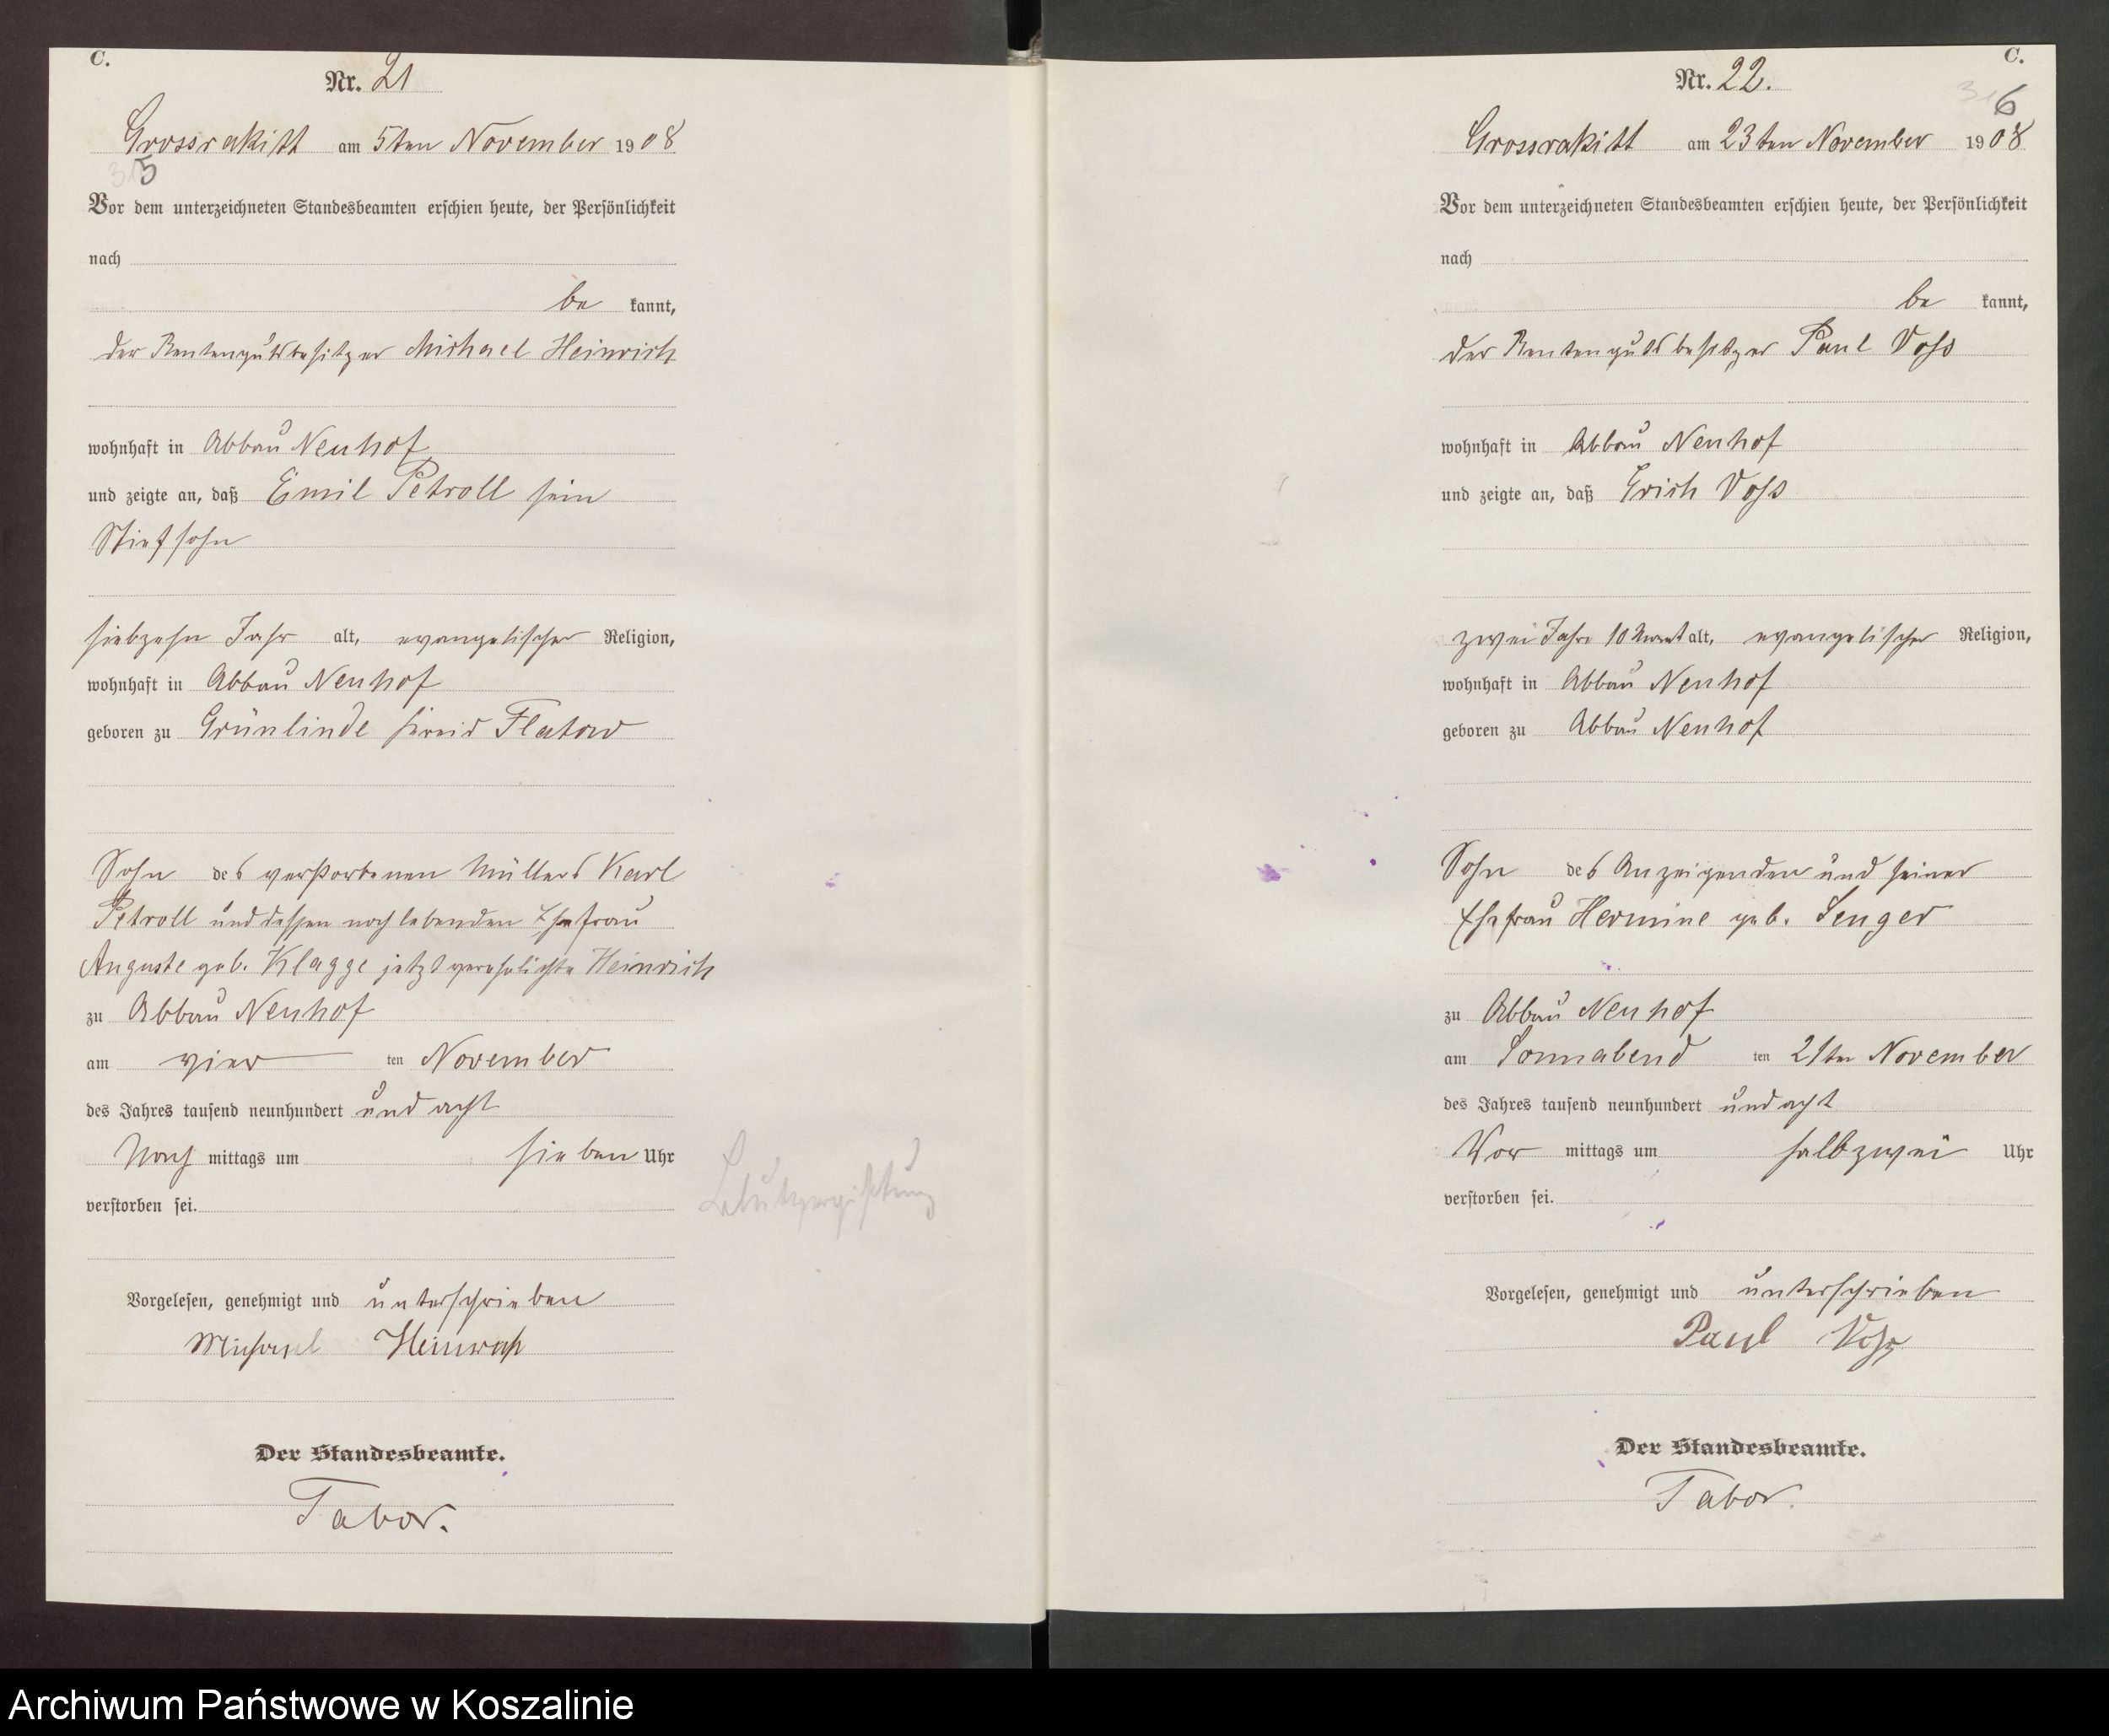 C.
Nr. 21
Grossrakitt am 5ten November 1908
5
Vor dem unterzeichneten Standesbeamten erschien heute, der Persönlichkeit
nach
be kannt,
der Rentengutsbesitzer Michael Heinrich
wohnhaft in Abbau Neuhof
und zeigte an, daß Emil Petroll sein
Stiefsohn
siebzehn Jahr alt, evangelischer Religion,
wohnhaft in Abbau Neuhof
geboren zu Grünlinde Kreis Flatow
Sohn des verstorbenen Müllers Karl
Petroll und dessen noch lebenden Ehefrau
Auguste geb. Klagge jetzt verehelichte Heinrich
zu Abbau Neuhof
am vier ten November
des Jahres tausend neunhundert und acht
Nach mittags um sieben Uhr
verstorben sei.
Vorgelesen, genehmigt und unterschrieben
Michael Heinrich
Der Standesbeamte.
Tabor.
C.
Nr. 22.
6
Grossrakitt am 23ten November 1908
Vor dem unterzeichneten Standesbeamten erschien heute, der Persönlichkeit
nach
be kannt,
der Rentengutsbesitzer Paul Voss
wohnhaft in Abbau Neuhof
und zeigte an, daß Erich Voss
zwei Jahre 10 Monat alt, evangelischer Religion,
wohnhaft in Abbau Neuhof
geboren zu Abbau Neuhof
Sohn des Anzeigenden und seiner
Ehefrau Hermine geb. Senger
zu Abbau Neuhof
am Sonnabend ten 21ten November
des Jahres tausend neunhundert und acht
Vor mittags um halbzwei Uhr
verstorben sei.
Vorgelesen, genehmigt und unterschrieben
Paul Voss
Der Standesbeamte.
Tabor.
Archiwum Państwowe w Koszalinie